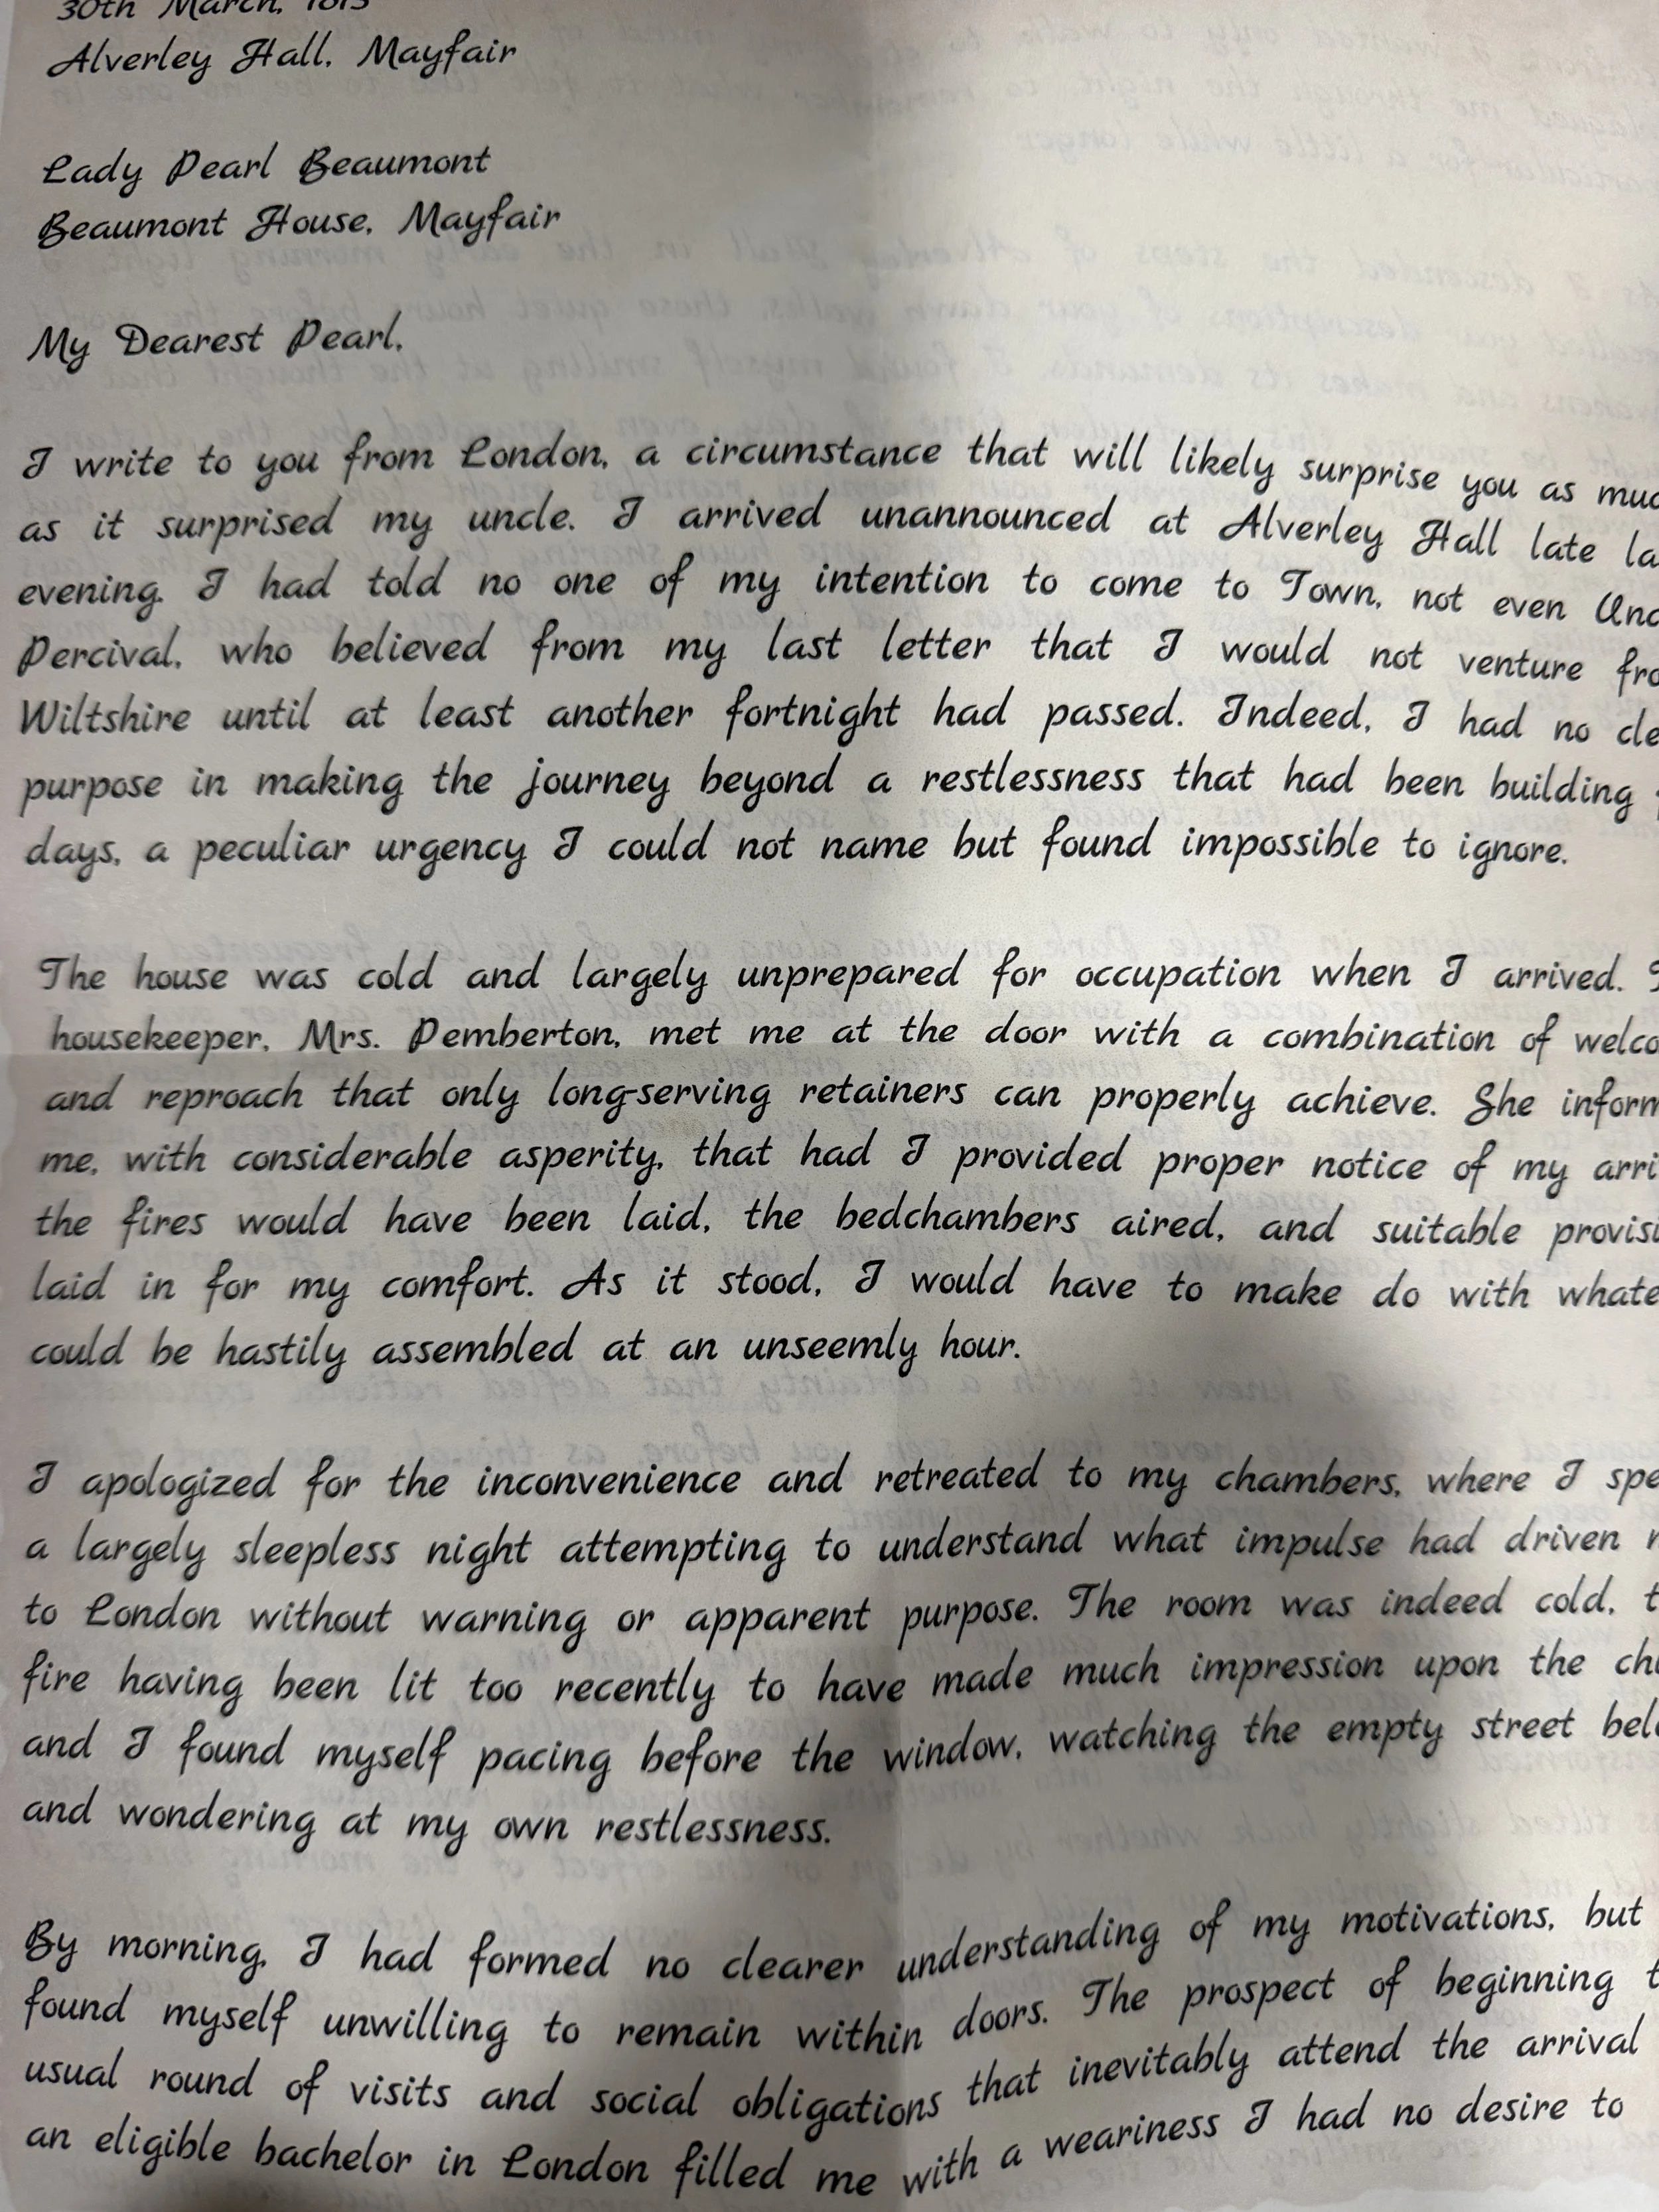 30th March, 1813
Alverley Hall, Mayfair
Lady Pearl Beaumont
Beaumont House, Mayfair
My Dearest Pearl,
I write to you from London, a circumstance that will likely surprise you as muc
as it surprised my uncle. I arrived unannounced at Alverley Hall late la
evening. I had told no one of my intention to come to Town, not even Unc
Percival, who believed from my last letter that I would not venture fro
Wiltshire until at least another fortnight had passed. Indeed, I had no cle
purpose in making the journey beyond a restlessness that had been building
days, a peculiar urgency I could not name but found impossible to ignore.
The house was cold and largely unprepared for occupation when I arrived.
housekeeper, Mrs. Pemberton, met me at the door with a combination of welco
and reproach that only long-serving retainers can properly achieve. She inform
me, with considerable asperity, that had I provided proper notice of my arri
the fires would have been laid, the bedchambers aired, and suitable provisi
laid in for my comfort. As it stood, I would have to make do with whate
could be hastily assembled at an unseemly hour.
I apologized for the inconvenience and retreated to my chambers, where I spe
a largely sleepless night attempting to understand what impulse had driven
to London without warning or apparent purpose. The room was indeed cold, t
fire having been lit too recently to have made much impression upon the chi
and I found myself pacing before the window, watching the empty street belo
and wondering at my own restlessness.
By morning, I had formed no clearer understanding of my motivations, but
found myself unwilling to remain within doors. The prospect of beginning t
usual round of visits and social obligations that inevitably attend the arrival
an eligible bachelor in London filled me with a weariness I had no desire to